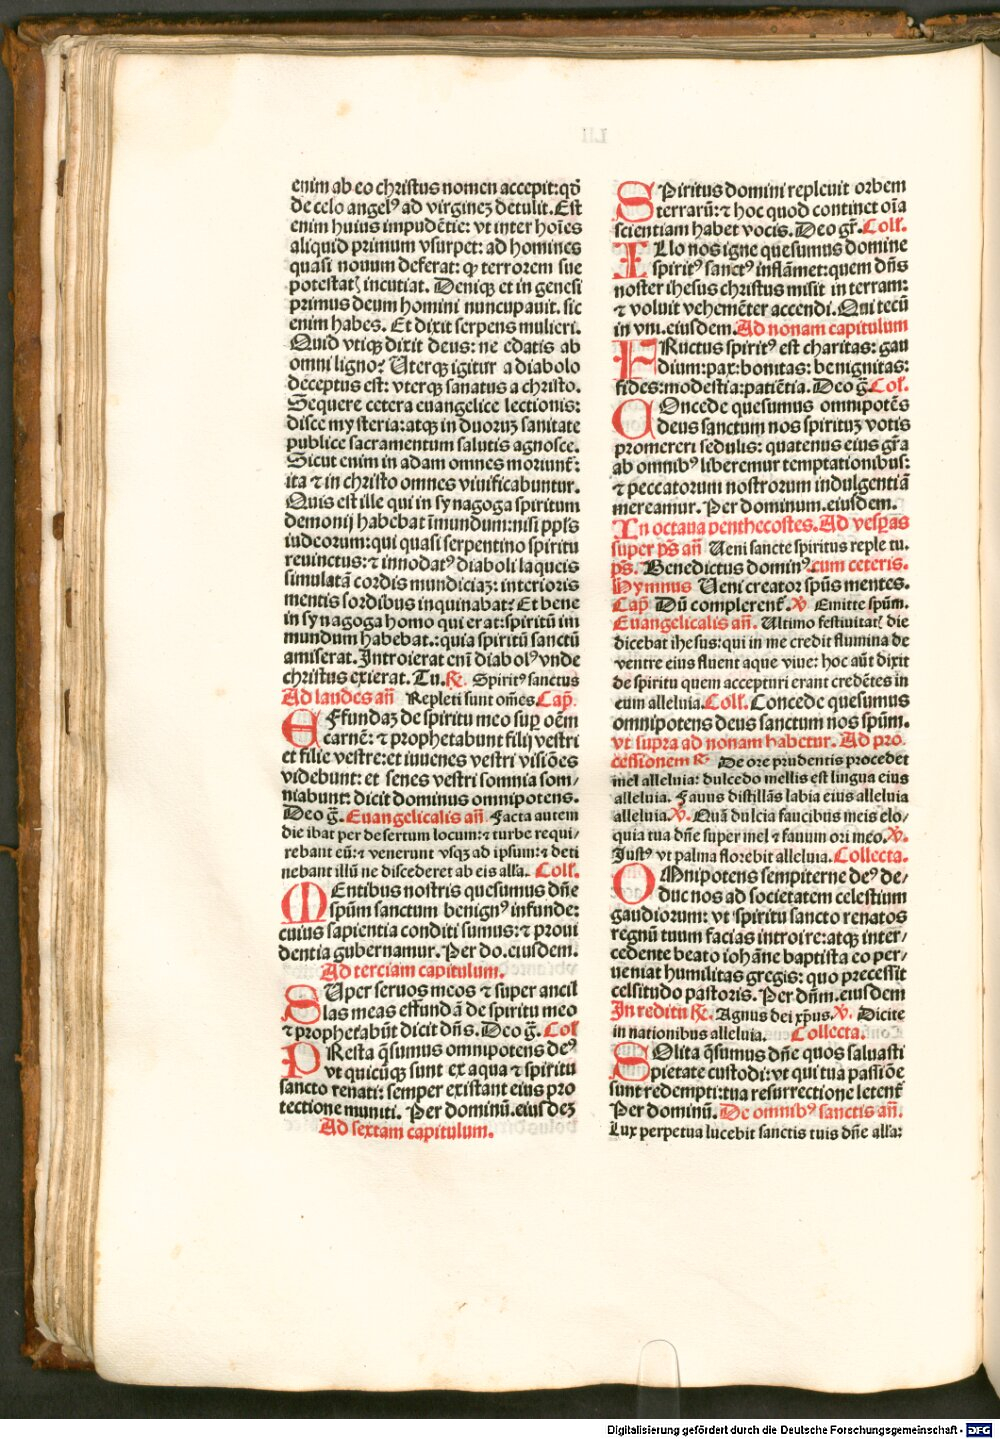 enim ab eo christus nomen accepit: qđ
de celo angelꝰ ad virgineʒ detulit. Est
enim huius impudētie: vt inter hoīes
aliquid primum vsurpet: ad homines
quasi nouum deferat: ꝙ terrorem sue
potestatꝭ incutiat. Deniqꝫ et in genesi
primus deum homini nuncupauit. sic
enim habes. Et dixit serpens mulieri.
Quid vtiqꝫ dixit deus: ne edatis ab
omni ligno? Uterqꝫ igitur a diabolo
deceptus est: vterqꝫ sanatus a christo.
Sequere cetera euangelice lectionis:
disce mysteria: atqꝫ in duoruʒ sanitate
publice sacramentum salutis agnosce.
Sicut enim in adam omnes moriunť:
ita ⁊ in christo omnes viuificabuntur.
Quis est ille qui in synagoga spiritum
demonij habebat īmundum: nisi ppľs
iudeorum: qui quasi serpentino spiritu
reuinctus: ⁊ innodatꝰ diaboli laqueis
simulatā cordis mundiciaʒ: interioris
mentis sordibus inquinabat? Et bene
in synagoga homo qui erat: spiritū im
mundum habebat.: quia spiritū sanctū
amiserat. Introierat enī diabolꝰ vnde
christus exierat. Tu. ℟. Spiritꝰ sanctus
Ad laudes añ Repleti sunt om̄es. Cap̄.
EFfundaʒ de spiritu meo suꝑ oēm
carnē: ⁊ prophetabunt filij vestri
et filie vestre: et iuuenes vestri visiōes
videbunt: et senes vestri somnia som/
niabunt: dicit dominus omnipotens.
Deo g̃. Euangelicalis añ Facta autem
die ibat per desertum locum: ⁊ turbe requi/
rebant eū: ⁊ venerunt vsqꝫ ad ipsum: ⁊ deti
nebant illū ne discederet ab eis aľľa. Colľ.
MEntibus nostris quesumus dñe
spūm sanctum benignꝰ infunde:
cuius sapientia conditi sumus: ⁊ proui
dentia gubernamur. Per do. eiusdem.
Ad terciam capitulum.
SUper seruos meos ⁊ super ancil
las meas effundā de spiritu meo
⁊ prophetabūt dicit dñs. Deo g̃. Coľ
PResta q̄sumus omnipotens deꝰ
vt quicūqꝫ sunt ex aqua ⁊ spiritu
sancto renati: semper existant eius pro
tectione muniti. Per dominū. eiusdeʒ
Ad sextam capitulum.
SPiritus domini repleuit orbem
terrarū: ⁊ hoc quod continet oīa
scientiam habet vocis. Deo gr̃. Colľ.
ILlo nos igne quesumus domine
spiritꝰ sanctꝰ inflāmet: quem dñs
noster ihesus christus misit in terram:
⁊ voluit vehemēter accendi. Qui tecū
in vni. eiusdem. Ad nonam capitulum
FRuctus spiritꝰ est charitas: gau
dium: pax: bonitas: benignitas:
fides: modestia: patiētia. Deo g̃. Coľ.
COncede quesumus omnipotēs
deus sanctum nos spirituʒ votis
promereri sedulis: quatenus eius gr̃a
ab omnibꝰ liberemur temptationibus:
⁊ peccatorum nostrorum indulgentiā
mereamur. Per dominum. eiusdem.
In octaua penthecostes. Ad vesp̄as
super p̄s añ Ueni sancte spiritus reple tu.
p̄s. Benedictus dominꝰ. cum ceteris.
Hymnus Ueni creator spūs mentes.
Cap̄ Dū complerenť. ℣ Emitte spūm.
Euangelicalis añ. Ultimo festiuitatꝭ die
dicebat ihesus: qui in me credit flumina de
ventre eius fluent aque viue: hoc aūt dixit
de spiritu quem accepturi erant credētes in
eum alleluia. Colľ. Concede quesumus
omnipotens deus sanctum nos spūm.
vt supra ad nonam habetur. Ad pro
cessionem ℟ De ore prudentis procedet
mel alleluia: dulcedo mellis est lingua eius
alleluia. Fauus distillās labia eius alleluia
alleluia. ℣. Quā dulcia faucibus meis elo/
quia tua dñe super mel ⁊ fauum ori meo. ℣.
Justꝰ vt palma florebit alleluia. Collecta.
OMnipotens sempiterne deꝰ de/
duc nos ad societatem celestium
gaudiorum: vt spiritu sancto renatos
regnū tuum facias introire: atqꝫ inter/
cedente beato iohāne baptista eo per/
ueniat humilitas gregis: quo precessit
celsitudo pastoris. Per dñm. eiusdem
In reditu ℟. Agnus dei xp̄us. ℣. Dicite
in nationibus alleluia. Collecta.
SOlita q̄sumus dñe quos saluasti
pietate custodi: vt qui tua passiōe
sunt redempti: tua resurrectione letenť
Per dominū. De omnibꝰ sanctis añ.
Lux perpetua lucebit sanctis tuis dñe aľľa:
Digitalisierung gefördert durch die Deutsche Forschungsgemeinschaft - DFG